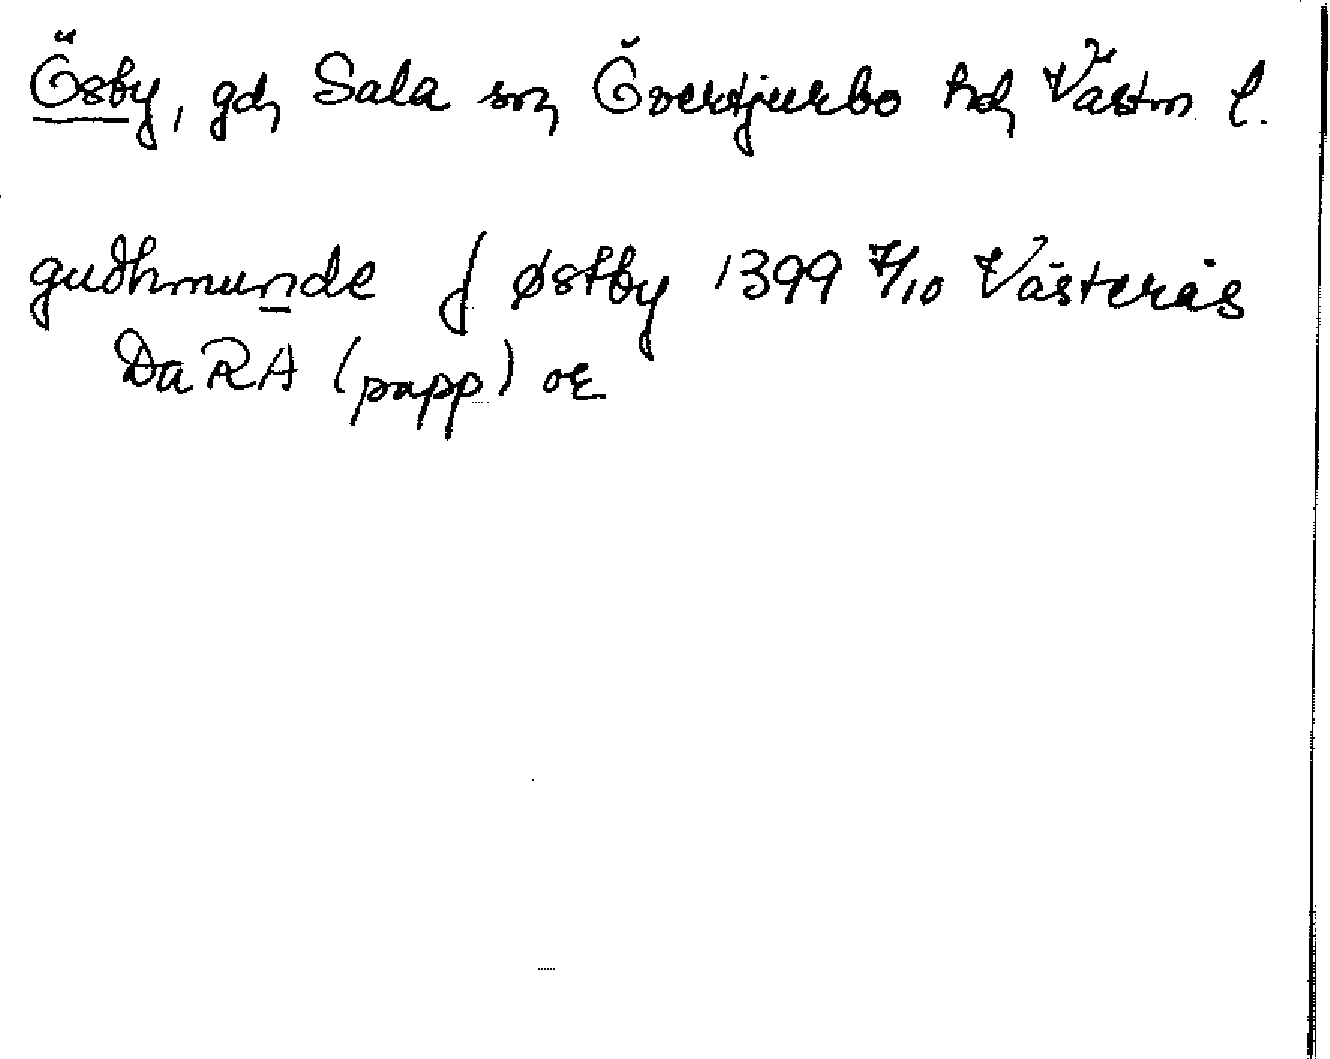 Ösby, gd, Sala sn, Övertjurbo hd, Västm l.
gudhmunde j østby 1399 7/10 Västerås
DaRA (papp) or